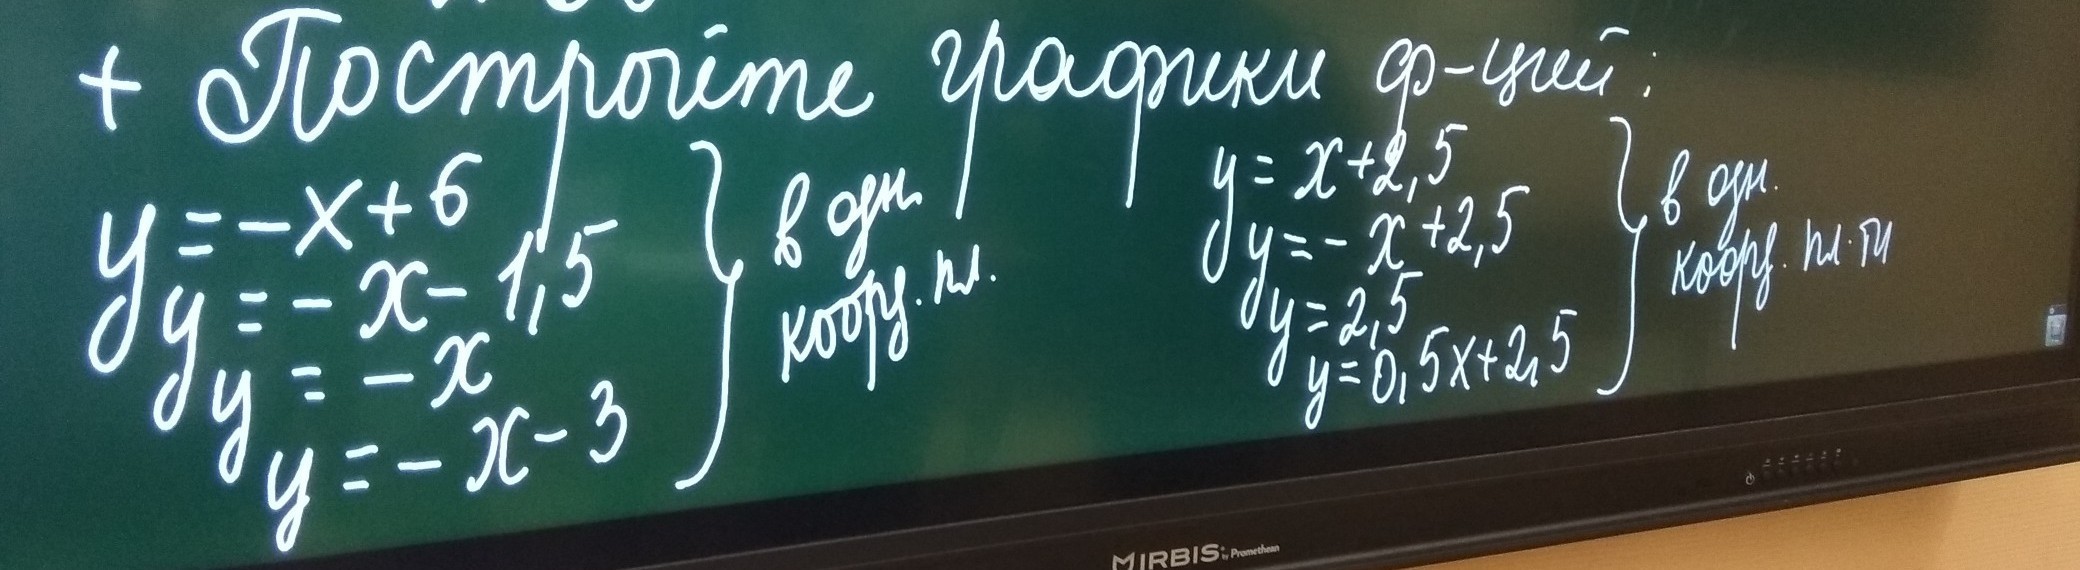 + Постройте графики ф-ций:
y = -x + 6
y = - x - 1,5
y = - x
y = - x - 3
в одн.
коорд. пл.
y = x + 2,5
y = - x + 2,5
y = 2,5
y = 0,5x + 2,5
в одн.
коорд. пл-ти
MIRBIS by Promethean